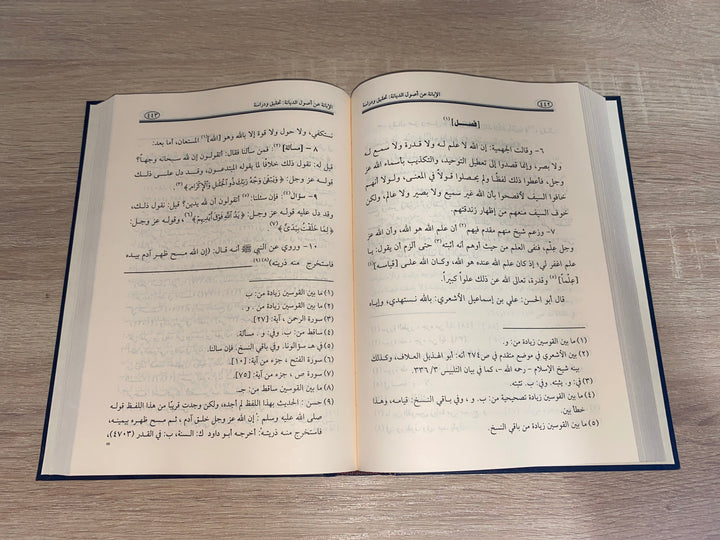 ٤٤٢
الإبانة عن أصول الديانة: تحقيق ودراسة
[فصــل] (١)
٦- وقالت الجهمية: إن الله لا علم له ولا قدرة ولا سمع له
ولا بصر، وإنما قصدوا إلى تعطيل التوحيد، والتكذيب بأسماء الله عز
وجل، فأعطوا ذلك لفظًا ولم يحصلوا قولاً في المعنى، ولولا أنهم
خافوا السيف لأفصحوا بأن الله غير سميع ولا بصير ولا عالم، ولكن
خوف السيف منعهم من إظهار زندقتهم.
٧- وزعم شيخ منهم مقدم فيهم (٢) أن علم الله هو الله، وأن الله عز
وجل علم، فنفى العلم من حيث أوهم أنه أثبته (٣) حتى ألزم أن يقول: يا
علم اغفر لي؛ إذ كان علم الله عنده هو الله، وكان الله على [قياسه] (٤)
[علمًا] (٥) وقدرة، تعالى الله عن ذلك علواً كبيراً.
قال أبو الحسن: علي بن إسماعيل الأشعري: بالله نستهدي، وإياه
(١) ما بين القوسين زيادة من: و.
(٢) بين الأشعري في موضع متقدم في ص٢٧٤ أنه: أبو الهذيل العلاف، وكذلك
بينه شيخ الإسلام - رحمه الله -، كما في بيان التلبيس ٣/ ٣٣٦.
(٣) في: و. يثبته. وفي ب. ثبته.
(٤) ما بين القوسين زيادة تصحيحية من: ب. و ، وفي باقي النسخ: قيامه، وهذا
خطأ بين.
(٥) ما بين القوسين زيادة من باقي النسخ.
الإبانة عن أصول الديانة: تحقيق ودراسة
٤٤٣
نستكفي، ولا حول ولا قوة إلا بالله وهو [الله] (١) المستعان، أما بعد:
٨ - [مسألة] (٢): فمن سألنا فقال: أتقولون إن لله سبحانه وجهاً؟
قيل له: نقول ذلك خلافًا لما يقوله المبتدعون، وقد دل على ذلك
قوله عز وجل: ﴿وَيَبْقَىٰ وَجْهُ رَبِّكَ ذُو الْجَلَٰلِ وَالْإِكْرَامِ﴾ (٣).
٩- سؤال (٤): فإن سئلنا: (٥) أتقولون أن لله يدين؟ قيل: نقول ذلك،
وقد دل عليه قوله عز وجل: ﴿يَدُ اللَّهِ فَوْقَ أَيْدِيهِمْ﴾ (٦)، وقوله عز وجل:
﴿لِمَا خَلَقْتُ بِيَدَيَّ﴾ (٧)
١٠- وروي عن النبي ﷺ أنه قال: (إن الله مسح ظهر آدم بيده
فاستخرج منه ذريته) (٨)(٩)
(١) ما بين القوسين زيادة من: ب
(٢) ما بين القوسين زيادة من: ب. و .
(٣) سورة الرحمن ، آية: [٢٧].
(٤) ساقط من: ب. وفي: و. مسألة.
(٥) في هـ. سؤالونا. وفي باقي النسخ. فإن سألنا.
(٦) سورة الفتح ، جزء من آية: [١٠].
(٧) سورة ص ، جزء من آية: [٧٥].
(٨) ما بين القوسين ساقط من: جـ
(٩) حسن : الحديث بهذا اللفظ لم أجده، ولكن وجدت قريبًا من هذا اللفظ قوله
صلى الله عليه وسلم : إن الله عز وجل خلق آدم ، ثم مسح ظهره بيمينه،
فاستخرج منه ذريته: أخرجه أبو داود ك: السنة، ب: في القدر (٤٧٠٣)،